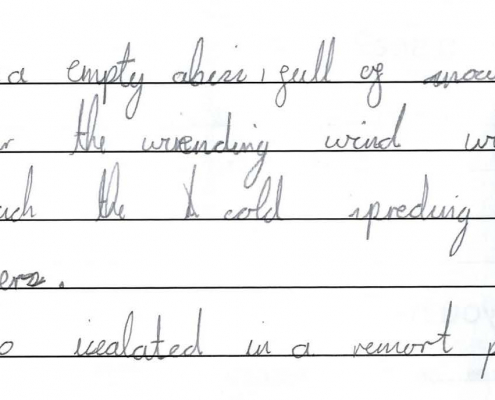 a empty abiss, full of snow
the wrending wind
the cold spreding
ers.
isealated in a remort p